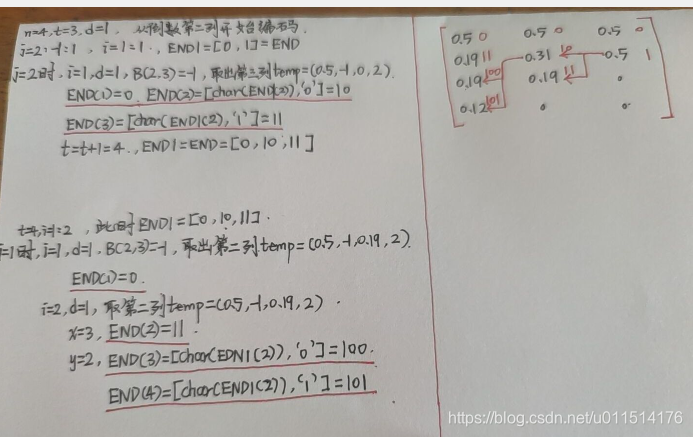 n=4, t=3, d=1, 从倒数第二列开始编码
j=2:-1:1, i=1=1., END1=[0, 1]=END
j=2时, i=1, d=1, B(2,3)=-1, 取出第三列temp=(0.5,-1,0,2).
END(1)=0, END(2)=[char(END1(2)),'0']=10
END(3)=[char(END1(2)),'1']=11
t=t+1=4., END1=END=[0, 10, 11]
t=4, i=1=2, 此时END1=[0, 10, 11].
j=1时, i=1, d=1, B(2,3)=-1, 取出第二列temp=(0.5,-1,0.19,2).
END(1)=0.
i=2, d=1, 取第二列temp=(0.5,-1,0.19,2).
x=3, END(2)=11.
y=2, END(3)=[char(EDN1(2)),'0']=100.
END(4)=[char(END1(2)),'1']=101
0.5 0 0.5 0 0.5 0
0.19 11 0.31 10 0.5 1
0.19 100 0.19 11 0
0.12 101 0 0
https://blog.csdn.net/u011514176